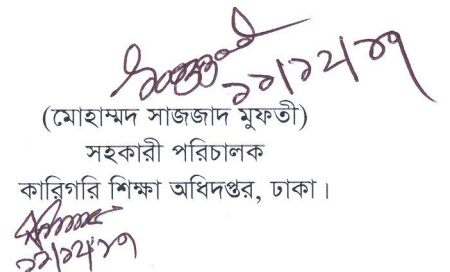 ১২/১২/১৭
(মোহাম্মদ সাজজাদ মুফতী)
সহকারী পরিচালক
কারিগরি শিক্ষা অধিদপ্তর, ঢাকা।
১২/১২/১৭